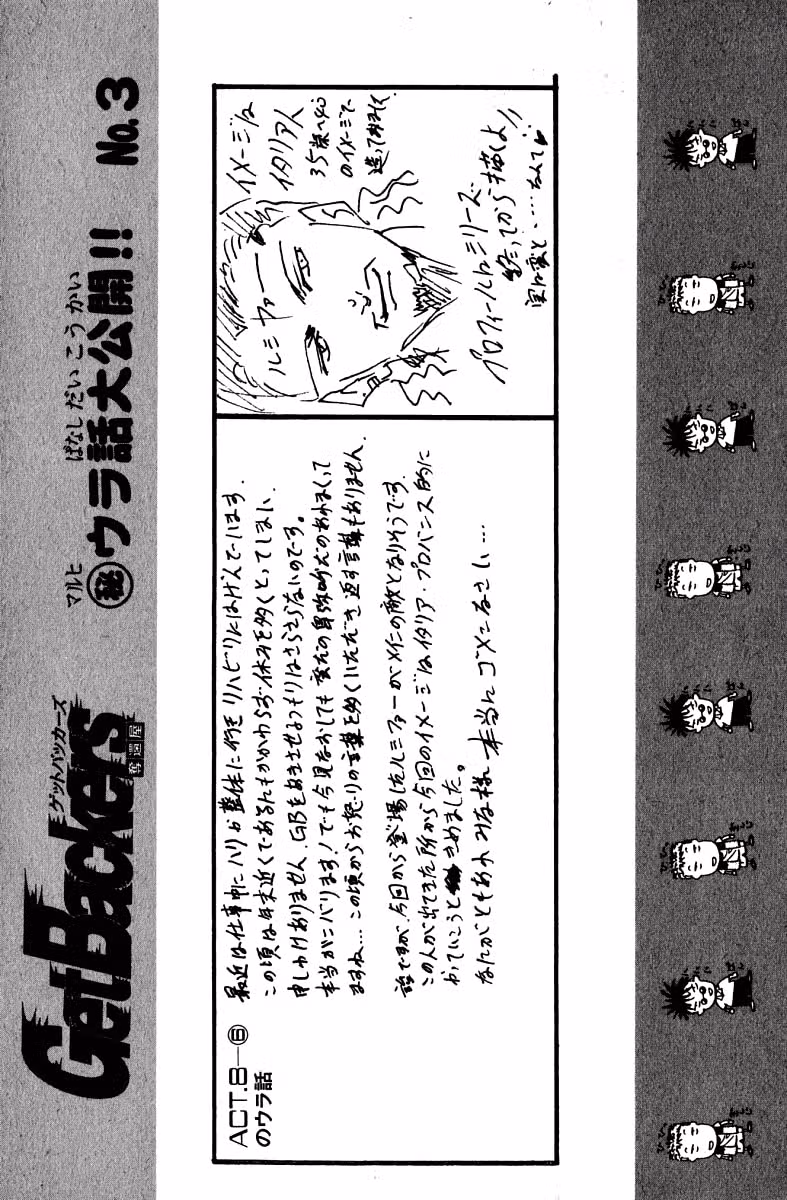 ゲットバッカーズ
GetBackers
奪還屋
マルヒ ばなしだいこうかい
㊙ウラ話大公開!! No.3
ACT.8―⑥
のウラ話
最近は仕事中にハリや整体に行きリハビリにはげんでいます.
この頃は年末近くであるにもかかわらずお休みを多くとってしまい
申しわけありません GBをあきさせるつもりはさらさらないのです。
本当がんばります!でも今見なおしても
ますね…この頃からお怒りの言葉を多くいただき返す言葉もありません.
話ですが、今回から登場したルシファーがメインの敵となりそうです.
この人が出てきた所から今回のイメージはイタリア・プロバンス的に
かっていこうときめました。
なにがともあれ みな様 本当にゴメンなさい…
イメージは
イタリア人
35歳〜40
のイメージで
造ってあります
ルシファー
プロフィールトシリーズ
終ってから描くよ!!
実に変と……なんて♥